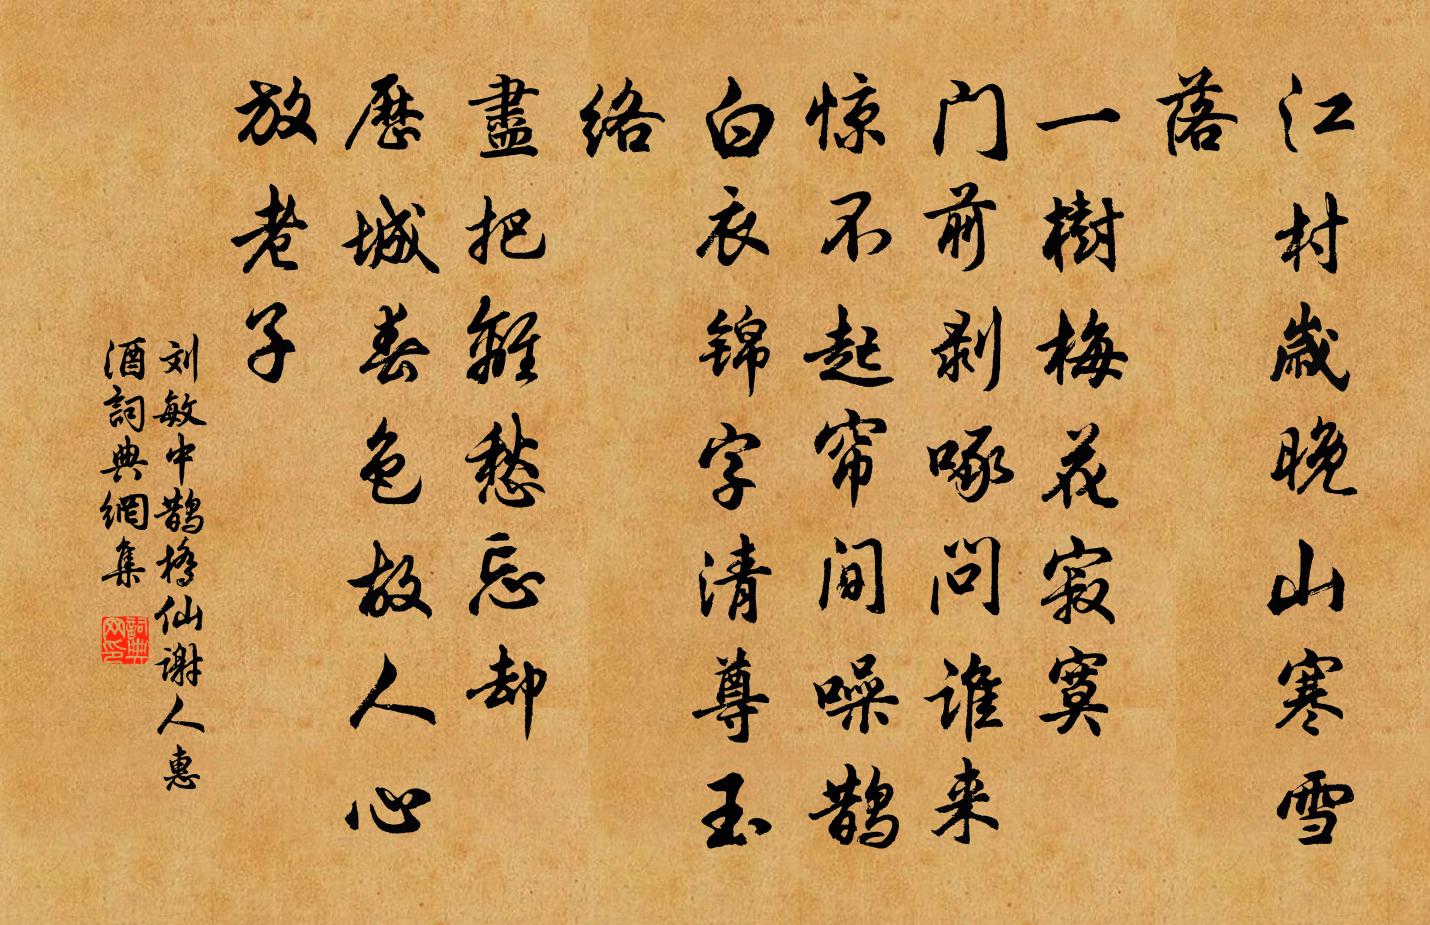 江村歲晚山寒雪
落
一樹梅花寂寞
门前剥啄问谁来
惊不起帘间噪鹊
白衣锦字清尊玉
络
盡把離愁忘却
歷城春色故人心
放老子
刘敏中鹊橋仙谢人惠
酒詞典網集
詞典
网印